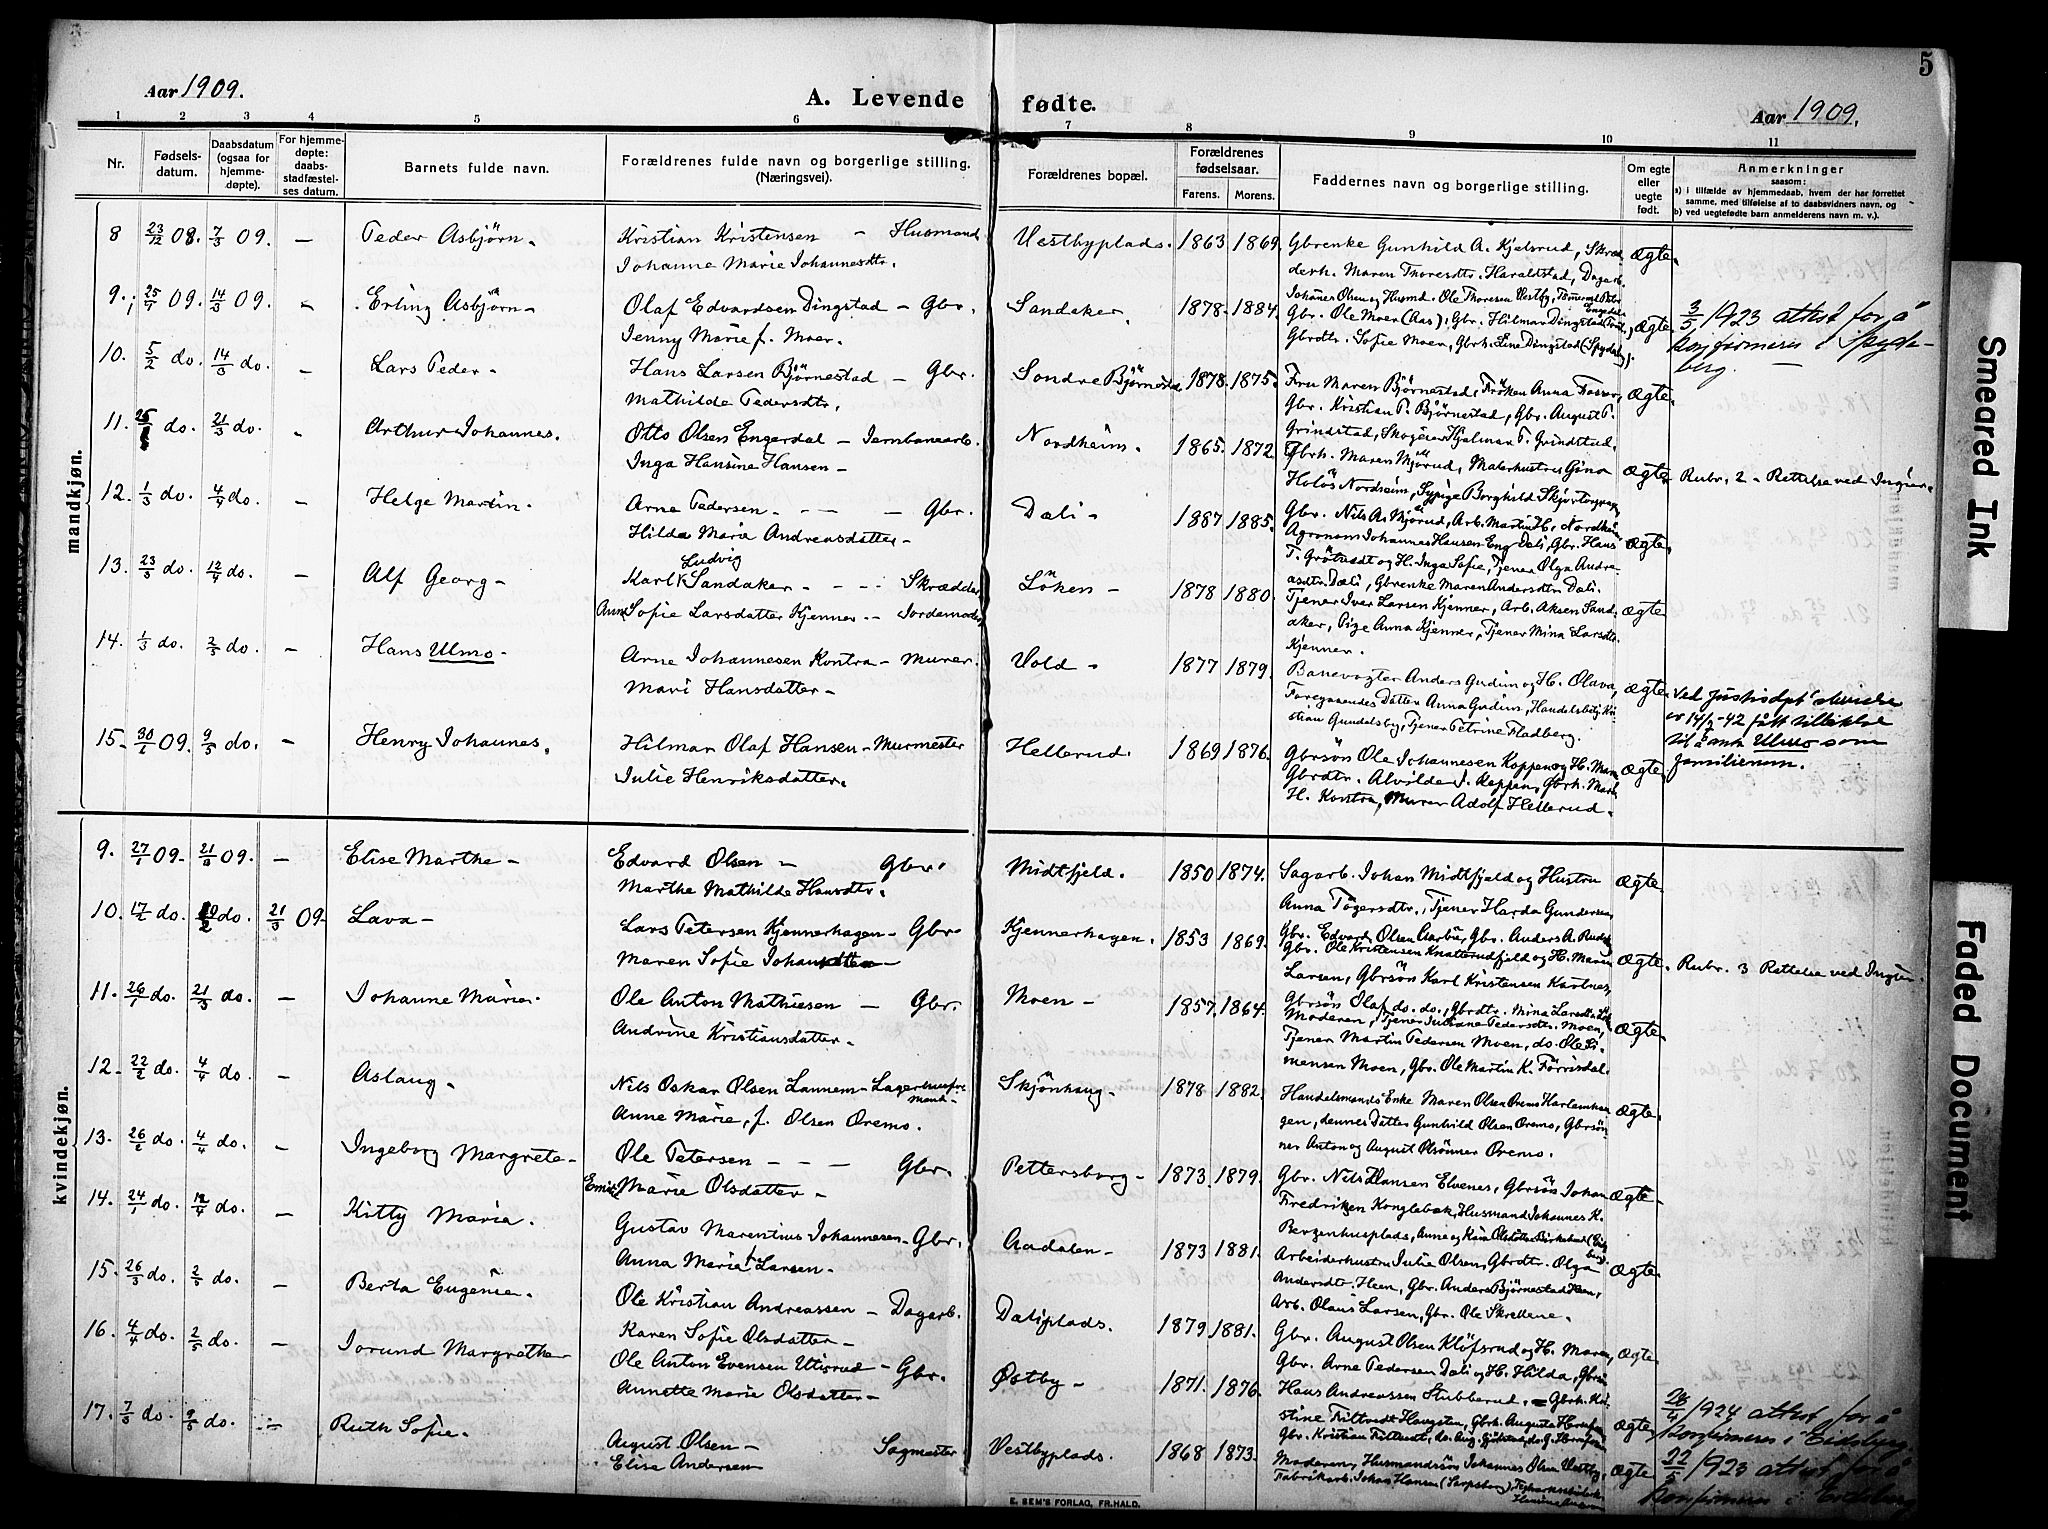 5
Aar 1909.
A. Levende fødte.
Aar 1909.
1 2 3 4 5 6 7 8 9 10 11
Nr.
Fødsels-
datum.
Daabsdatum
(ogsaa for
hjemme-
døpte).
For hjemme-
døpte:
daabs-
stadfæstel-
ses datum.
Barnets fulde navn.
Forældrenes fulde navn og borgerlige stilling.
(Næringsvei).
Forældrenes bopæl.
Forældrenes
fødselsaar.
Farens. Morens.
Faddernes navn og borgerlige stilling.
Om egte
eller
uegte
født.
Anmerkninger
saasom:
a) i tilfælde av hjemmedaab, hvem der har forrettet
samme, med tilføielse af to daabsvidners navn, og
b) ved uegtefødte barn anmelderens navn m. v.).
mandkjøn.
8 23/12 08. 7/3 09. — Peder Asbjørn. Kristian Kristensen — Husmand Vestbyplads. 1863 1869. Ægte.
Johanne Marie Johannesdtr.
Gbrenke Gunhild A. Kjelsrud, Skræd-
derh. Maren Thoresdtr. Haraldstad, Dagarb.
9. 09. 14/3 09. — Erling Asbjørn — Olaf Edvardsen Dingstad — Gbr. Sandaker. 1878. 1884. Ægte.
Jenny Marie f. Moer.
Gbr. Ole Moer (Aas), Gbr. Hilmar Dingstad
Gbrdtr. Sofie Moen, Gbrh. Line Dingstad (Spydeberg).
3/5 1923 attest for å
konfirmeres i Spyde-
berg. —
10. 5/2 do. 14/3 do. — Lars Peder — Hans Larsen Björnestad — Gbr. Söndre Björnestad 1878. 1875. Ægte.
Mathilde Pedersdtr.
Fru Maren Björnestad, Fröken Anna Fosser,
Gbr. Kristian P. Björnestad, Gbr. August P.
Grindstad, Skogeier Hjalmar P. Grindstad.
11. do. 21/3 do. — Arthur Johannes. Otto Olsen Engerdal — Jernbanearb. Nordheim. 1865. 1872. Ægte.
Inga Hansine Hansen —
Gbrh. Maren Mjørud, Malerhustru Gina
Gbr. Nils A. Mjörud, Arb. Martin H. Nordheim
Rubr. 2 – Rettelse ved Ingier.
12. 1/3 do. 4/4 do. — Helge Martin. Arne Pedersen — — — Gbr. Dæli — 1887 1885. Ægte.
Hilda Marie Andreasdatter —
Agronom Johannes Hansen Eng Dæli, Gbr. Hans
P. Grötvedt og H. Inga Sofie, Tjener Olga Andre-
asdtr. Dæli, Gbrenke Maren Andersdtr. Dæli.
13. 23/3 do. 12/4 do. — Alf Georg — Karl Ludvig Sandaker — — — Skrædder Löken — 1878 1880. Ægte
Anna Sofie Larsdatter Kjenner — Jordemoder
Tjener Iver Larsen Kjenner, Arb. Aksen Sand-
aker, Pige Anna Kjenner, Tjener Mina Larsdtr.
Kjenner.
14. 1/3 do. 2/5 do. — Hans Ulmo — Arne Johannesen Kontra — Murer. Vold — 1877 1879. Ægte.
Mari Hansdatter —
Banevogter Anders Gudim og H. Olava,
Foregaaendes Datter Anna Gudim, Handelsbetj. Kri-
stian Gundelsby, Tjener Petrine Fladberg.
Ved Justisdpt' skrivelse
av 14/1-42 fått tillatelse
til å anta Ulmo som
familienavn.
15. 09. 9/5 do. — Henry Johannes. Hilmar Olaf Hansen — Murmester Hellerud. 1869 1876. Ægte.
Julie Henriksdatter.
Gbrsön Ole Johannesen Koppen og H. Mari
Gbrdtr. Alvilde J. Koppen, Gbrh. Mari
H. Kontra, Murer Adolf Hellerud.
kvindekjøn.
9. 27/1 09. 21/3 09. — Elise Marthe — Edvard Olsen — Gbr. Midtfjeld. 1850 1874. Ægte
Marthe Mathilde Hansdtr.
Sagarb. Johan Midtfjeld og Hustru
Anna Tögersdtr., Tjener Harda Gundersen,
Gbr. Edvard Olsen Aarbu, Gbr. Anders A. Rud
10. 17/2 do. do. 21/3 09. Lava — Lars Petersen Kjennerhagen — Gbr. Kjennerhagen. 1853 1869. Ægte.
Maren Sofie Johansdatter —
Gbr. Ole Kristensen Knatterudfjeld og H. Maren
Larsen, Gbrsön Karl Kristensen Kartnes,
Gbrsön Olaf do. do., Gbrdtr. Mina Larsdtr.
Rubr. 3 Rettelse ved Ingier.
11. 26/1 do. 21/3 do. — Johanne Marie. Ole Anton Mathiesen — Gbr. Moen — 1857. 1864. Ægte
Andrine Kristiansdatter.
Moderen, Tjener Juliane Pedersdtr. Moen,
Tjener Martin Pedersen Moen, do. Ole Si-
mensen Moen, Gbr. Ole Martin K. Förrisdal.
12. 22/2 do. 4/4 do. — Aslaug — Nils Oskar Olsen Lannem — Skjönhaug — 1878 1882. Ægte.
Anne Marie, f. Olsen Oremo.
Handelsmands Enke Maren Olsen Oremo Harlemhau-
gen, dennes Datter Gunhild Olsen Oremo, Gbrsön-
ner Anton og August Olsönner Oremo.
13. 26/2 do. 4/4 do. — Ingeborg Margrete — Ole Petersen — — — Gbr. Pettersborg — 1873. 1879. Ægte —
Emilie Marie Olsdatter —
Gbr. Nils Hansen Elvenes, Gbrsön Johan
Fredriksen Konglebæk, Husmand Johannes K.
14. 24/1 do. do. — Kitty Maria. Gustav Marentius Johannesen — Gbr. Aadalen — 1873 1881. Ægte.
Anna Marie Larsen —
Arbeiderhustru Julie Olsen, Gbrdtr. Olga
Andersdtr. Heen, Gbr. Anders Björnestad Heen,
Arb. Olaus Larsen, Gbr. Ole Skrellene.
15. 26/3 do. 2/5 do. — Berta Eugenie. Ole Kristian Andreassen — Dagarb. Dæliplads. 1879 1881. Ægte
Karen Sofie Olsdatter —
Gbr. August Olsen Klöfsrud og H. Maren,
Gbr. Arne Pedersen Dæli og H. Hilda,
Hans Andreassen Stubberud,
16. 4/4 do. 2/5 do. — Jorund Margrethe Ole Anton Evensen Utigrud — Gbr. Østby — 1871. 1876. Ægte
Annette Marie Olsdatter —
1924 attest for å
konfirmeres i Eidsberg
17. do. 9/5 do. — Ruth Sofie. August Olsen — Sagmester Vestbyplads. 1868 1873. Ægte
Elise Andersen
Moderen, Husmandssön Johannes Olsen Vestby,
Fabrikarb. Johan Hansen (Sarpsborg),
22/5 1923 attest for å
konfirmeres i Eidsberg
E. SEM'S FORLAG, FR.HALD.
Smeared Ink
Faded Document